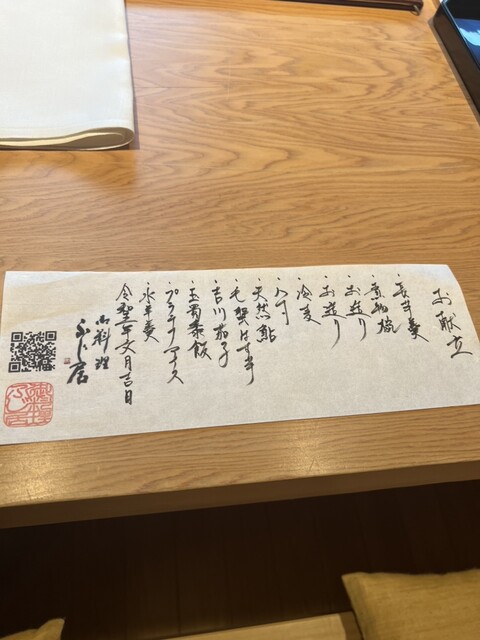 お献立
・長芋羹
・煮物椀
・お造り
・お造り
・冷麦
・八寸
・天然鮎
・毛蟹はす芋
・吉川茄子
・玉蜀黍飯
・プラチナコーナス
・水羊羹
文月吉日
御料理
ふじ居